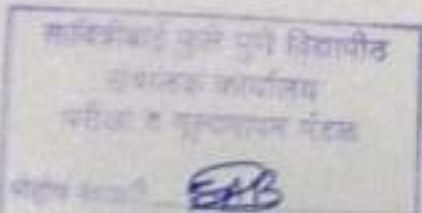 सावित्रीबाई फुले पुणे विद्यापीठ
संचालक कार्यालय
परीक्षा व मूल्यमापन मंडळ